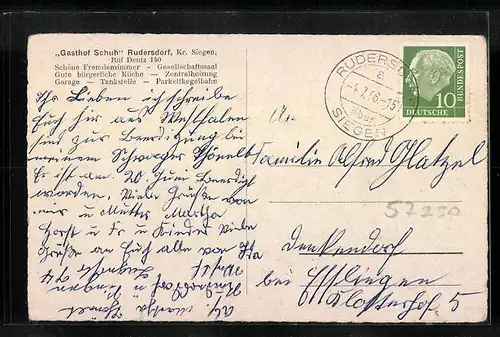 „Gasthof Schuh" Rudersdorf, Kr. Siegen,
Ruf Deutz 140
Schöne Fremdenzimmer — Gesellschaftssaal
Gute bürgerliche Küche — Zentralheizung
Garage — Tankstelle — Parkettkegelbahn
Ihr Lieben ich schreibe
Euch hir aus Westfalen
sind zur Beerdigung bei
meinem Schwager
Er ist am 20 Juni Beerdigt
worden. Viele Grüße von
mir u Mutter Martha
Horst u Fr u Kinder Viele
Grüße an Euch alle von
RUDERSDORF
a
über
SIEGEN
10
DEUTSCHE
BUNDESPOST
An
Familie Alfred Glatzel
57250
Denkendorf
bei Esslingen
Klosterhof 5